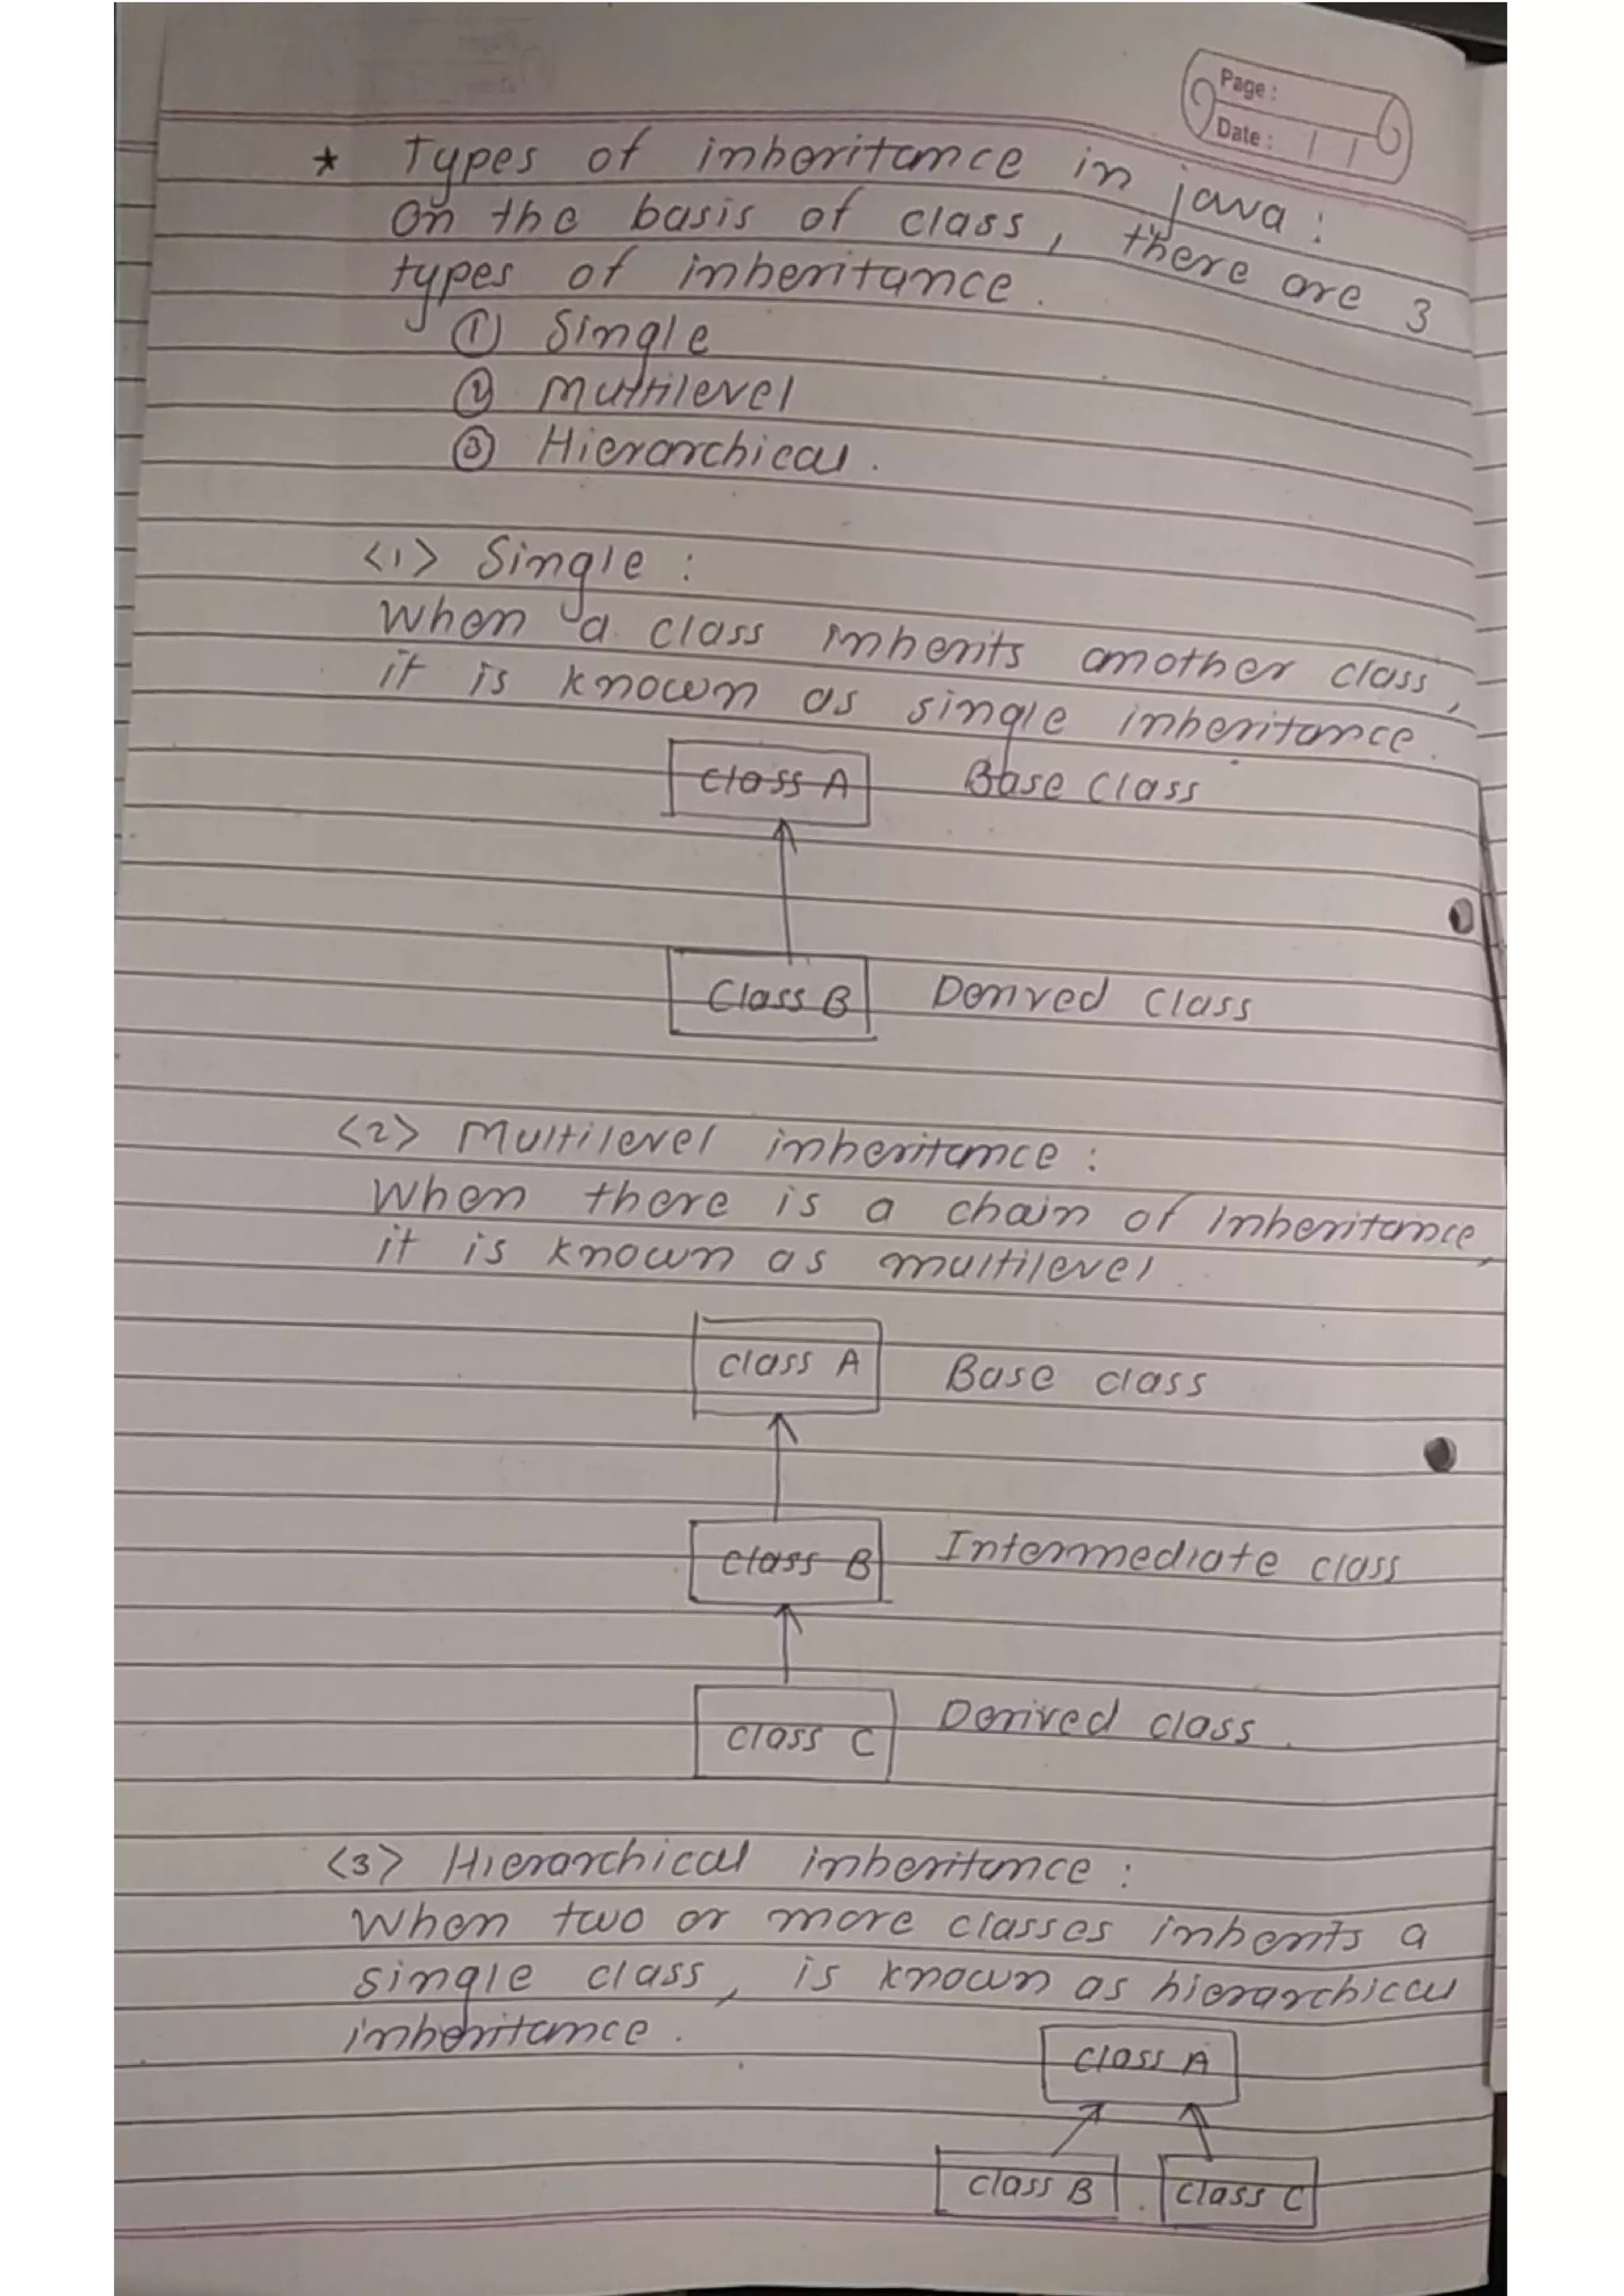 Page :
Date : / /
* Types of inheritance in java :
On the basis of class, there are 3
types of inheritance.
① Single
② Multilevel
③ Hierarchical.
<1> Single :
When a class inherits another class,
it is known as single inheritance.
class A Base Class
Class B Derived Class
<2> Multilevel inheritance :
When there is a chain of inheritance,
it is known as multilevel.
class A Base class
class B Intermediate class
class C Derived class.
<3> Hierarchical inheritance :
When two or more classes inherits a
single class, is known as hierarchical
inheritance.
class A
class B class C